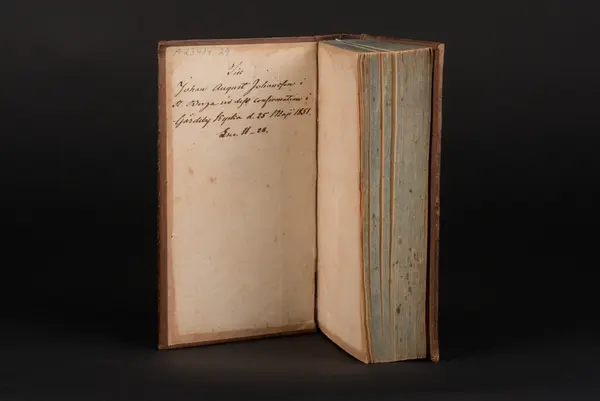 Till
Johan August Johansson i
N. Werga vid dess confirmation i
Gårdeby Kyrka d. 25 Maji 1851.
Luc. 11-28.